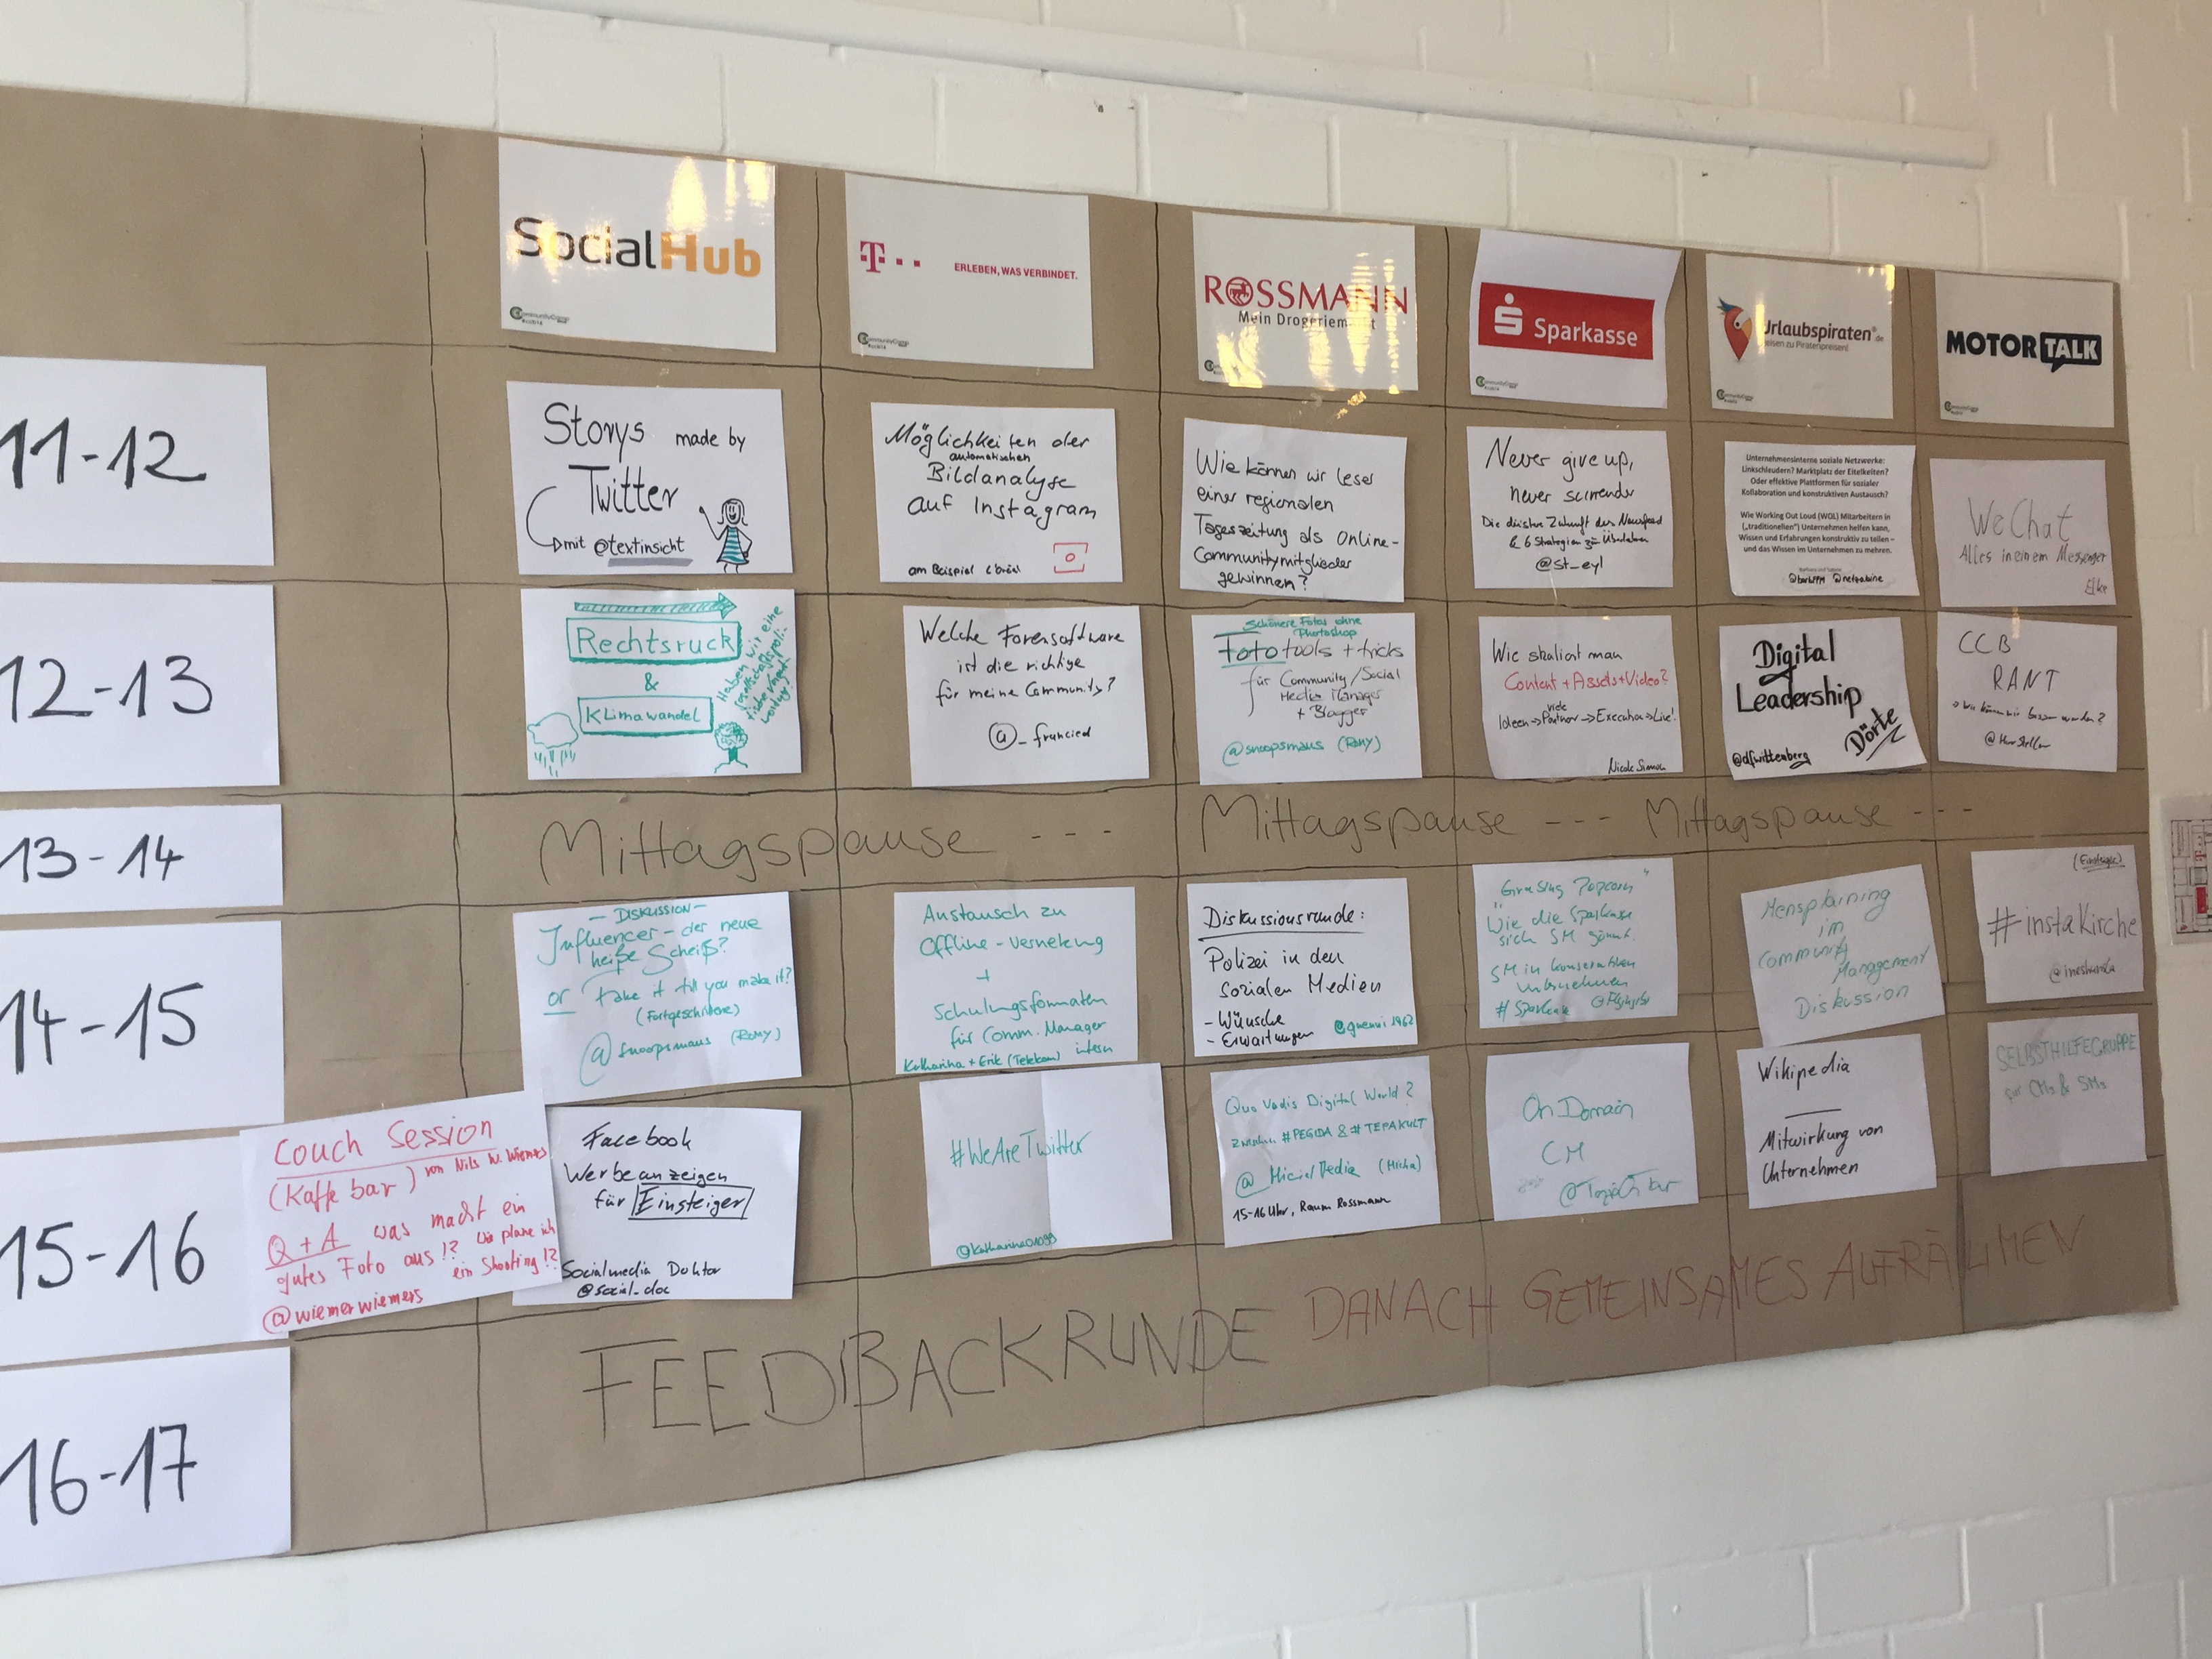 SocialHub
CommunityCamp
T . .
ERLEBEN, WAS VERBINDET.
CommunityCamp
ROSSMANN
Mein Drogeriemarkt
Sparkasse
CommunityCamp
Urlaubspiraten.de
CommunityCamp
MOTOR TALK
CommunityCamp
11-12
Storys made by
Twitter
mit @textinsicht
Möglichkeiten der
automatischen
Bildanalyse
auf Instagram
am Beispiel
Wie können wir Leser
einer regionalen
Tageszeitung als Online-
Communitymitglieder
gewinnen?
Never give up,
never surrender
Die düstere Zukunft des Newsfeed
& 6 Strategien zum Überleben
@st_eyl
Unternehmensinterne soziale Netzwerke:
Linkschleudern? Marktplatz der Eitelkeiten?
Oder effektive Plattformen für sozialer
Kollaboration und konstruktiven Austausch?
Wie Working Out Loud (WOL) Mitarbeitern in
("traditionellen") Unternehmen helfen kann,
Wissen und Erfahrungen konstruktiv zu teilen –
und das Wissen im Unternehmen zu mehren.
WeChat
Alles in einem Messenger
Elke
12-13
Rechtsruck
&
Klimawandel
Haben wir eine
gesellschaftspoli-
tische Verant-
wortung?
Welche Forensoftware
ist die richtige
für meine Community?
@_francied
Schönere Fotos ohne
Photoshop
Foto tools + tricks
für Community/Social
Media Manager
+ Blogger
@snoopsmaus (Romy)
Wie skaliert man
Content + Assets + Video?
viele
Ideen → Partner → Execution → Live!
Nicole Simon
Digital
Leadership
Dörte
@dfwittenberg
CCB
RANT
→ Wie können wir besser werden?
13-14
Mittagspause - - - Mittagspause - - - Mittagspause - - -
14-15
— DISKUSSION —
Influencer – der neue
heiße Scheiß?
or Fake it till you make it?
(Fortgeschrittene)
@snoopsmaus (Romy)
Austausch zu
Offline-Vernetzung
+
Schulungsformaten
für Comm. Manager
intern
Katharina + Erik (Telekom)
Diskussionsrunde:
Polizei in den
sozialen Medien
- Wünsche
- Erwartungen @gnewi1962
"Grassing Popcorn"
Wie die Sparkasse
sich SM gönnt.
SM in konservativen
Unternehmen
# Sparkasse
Mensplaining
im
Community
Management
Diskussion
(Einsteiger)
#instaKirche
15-16
Couch Session
(Kaffebar) von Nils W. Wiemers
Q + A was macht ein
gutes Foto aus!? Wie plane ich
ein Shooting!?
@wiemerwiemers
Facebook
Werbeanzeigen
für Einsteiger
Socialmedia Doktor
@social_doc
#WeAreTwitter
@katharina01099
Quo Vadis Digital World?
zwischen #PEGIDA & #TEPAKULT
(Micha)
15-16 Uhr, Raum Rossmann
On Domain
CM
Wikipedia
Mitwirkung von
Unternehmen
SELBSTHILFEGRUPPE
für CMs & SMs
16-17
FEEDBACKRUNDE DANACH GEMEINSAMES AUFRÄUMEN